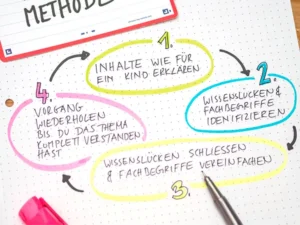 METHODE
1.
INHALTE WIE FÜR
EIN KIND ERKLÄREN
2.
WISSENSLÜCKEN &
FACHBEGRIFFE
IDENTIFIZIEREN
WISSENSLÜCKEN SCHLIESSEN
& FACHBEGRIFFE VEREINFACHEN
3.
4.
VORGANG
WIEDERHOLEN
BIS DU DAS THEMA
KOMPLETT VERSTANDEN
HAST